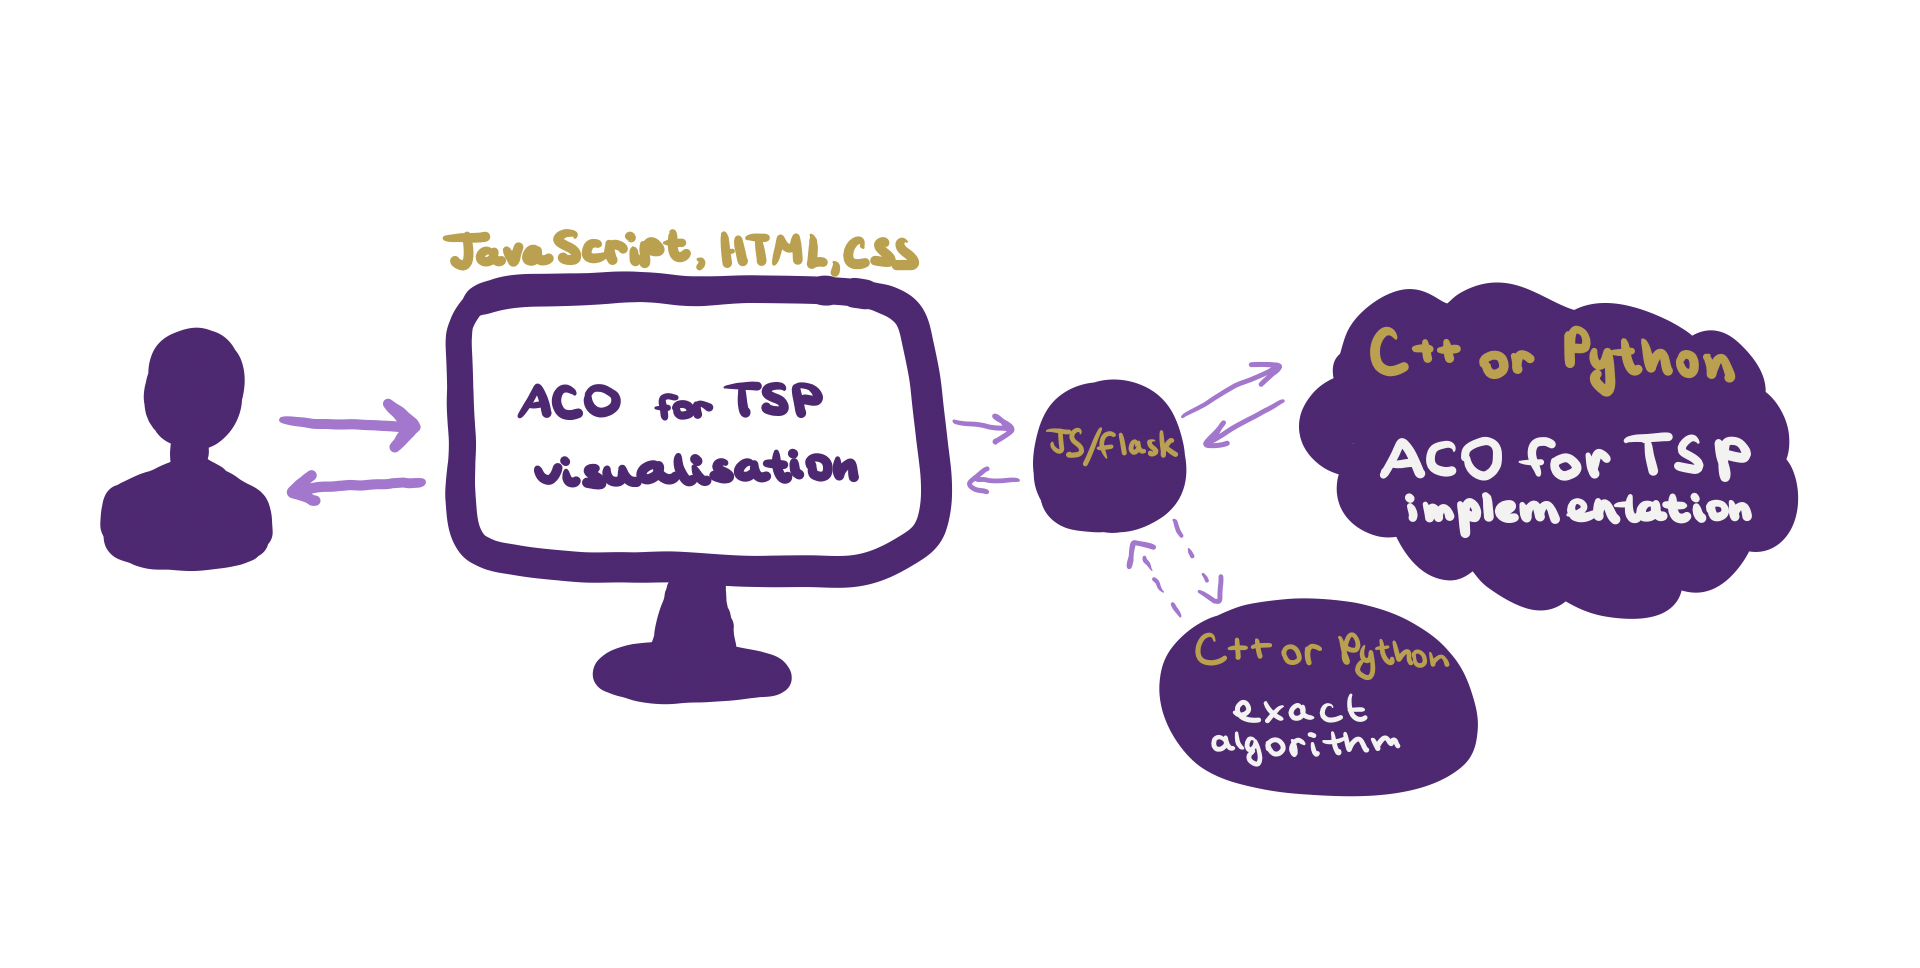 JavaScript, HTML, CSS
ACO for TSP
visualisation
JS/flask
C++ or Python
ACO for TSP
implementation
C++ or Python
exact
algorithm